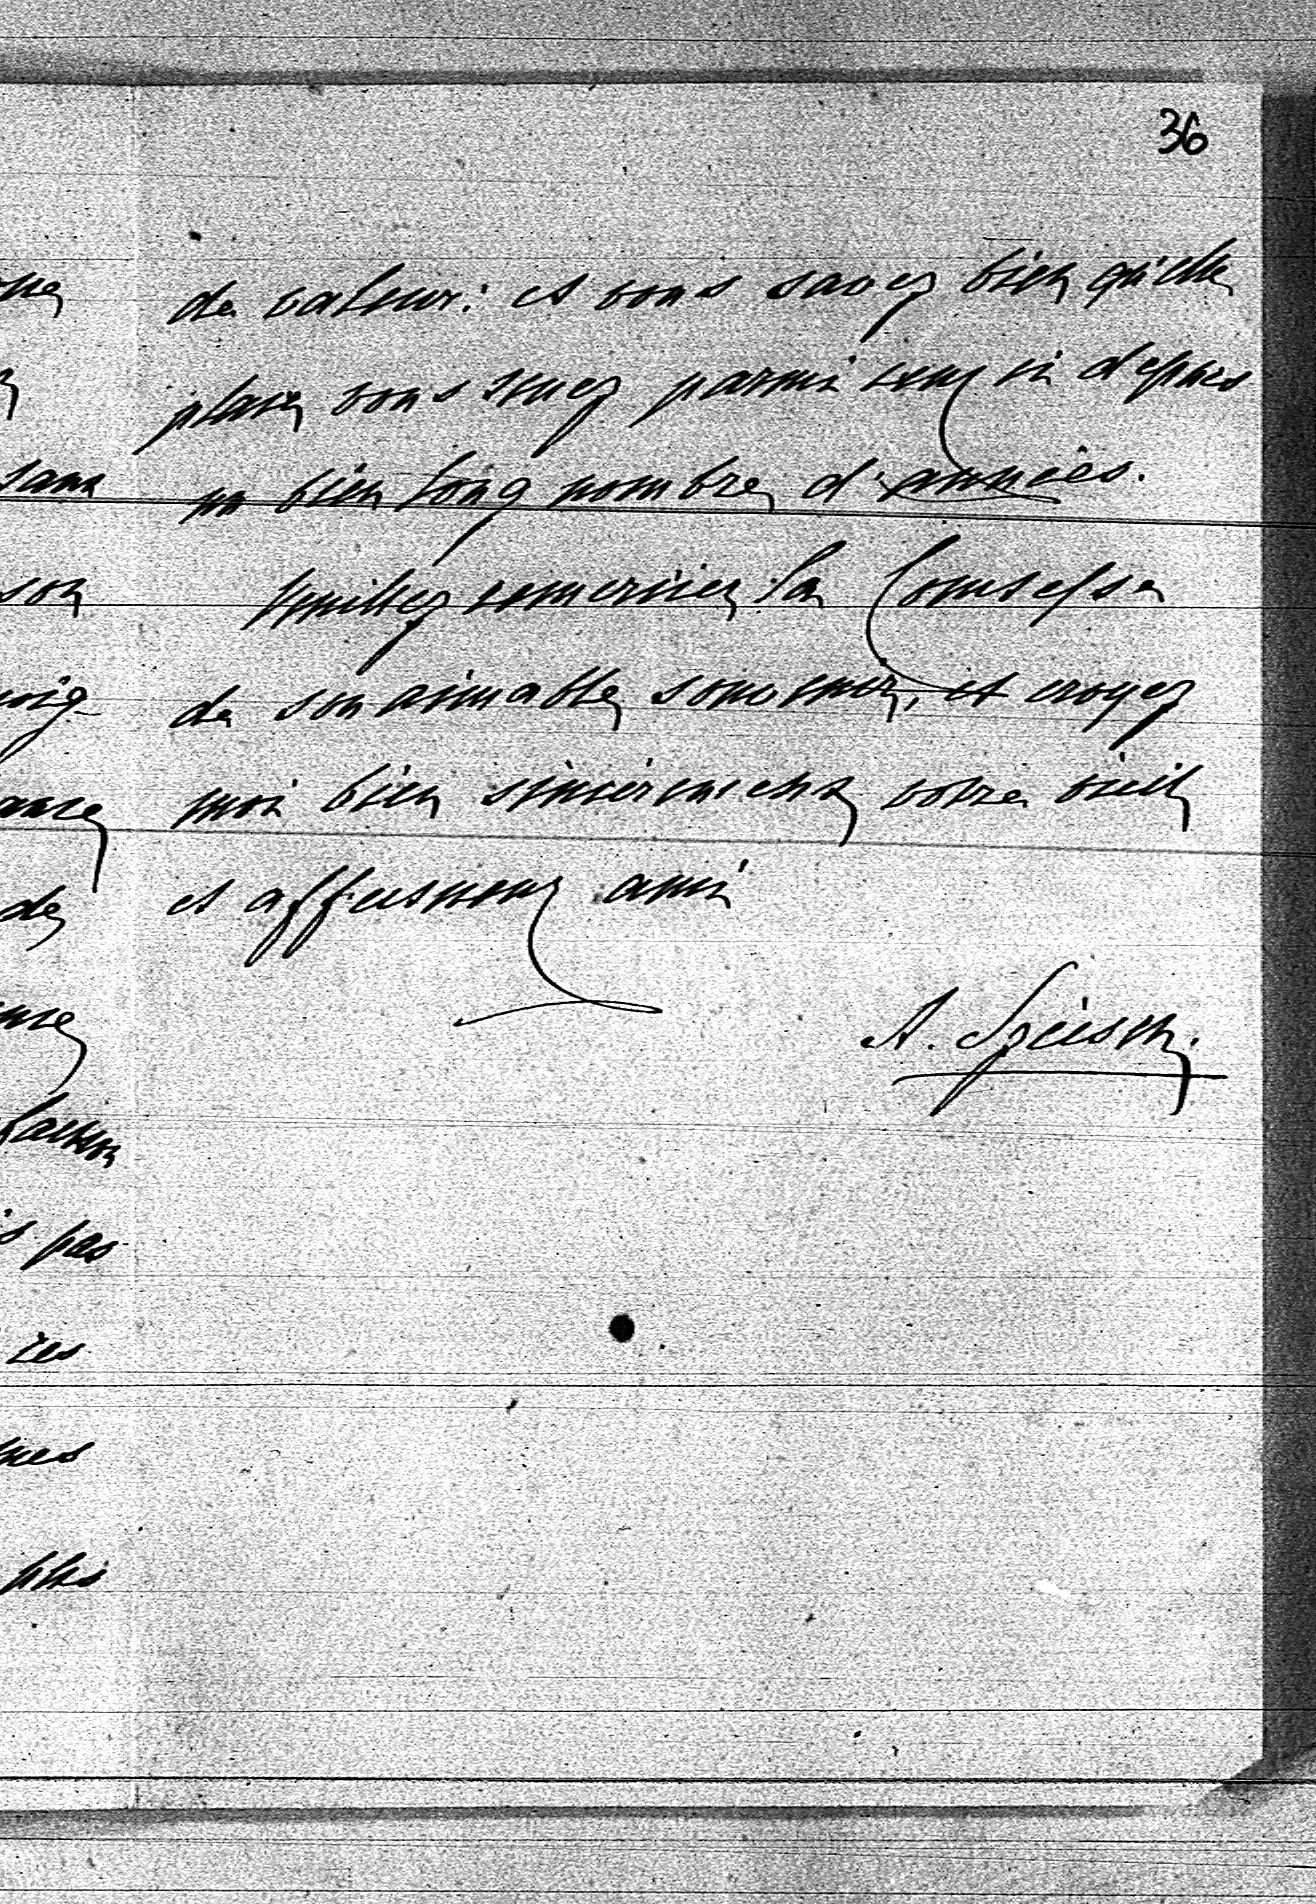 36
de valeur: et vous savez bien quelle
place vous tenez parmi ceux ci depuis
un bien long nombre d'années.
Veuillez remercier la Comtesse
de son aimable souvenir, et croyez
moi bien sincèrement votre vieil
et affectionné ami
A.
sans
son
de
pas
ces
plus